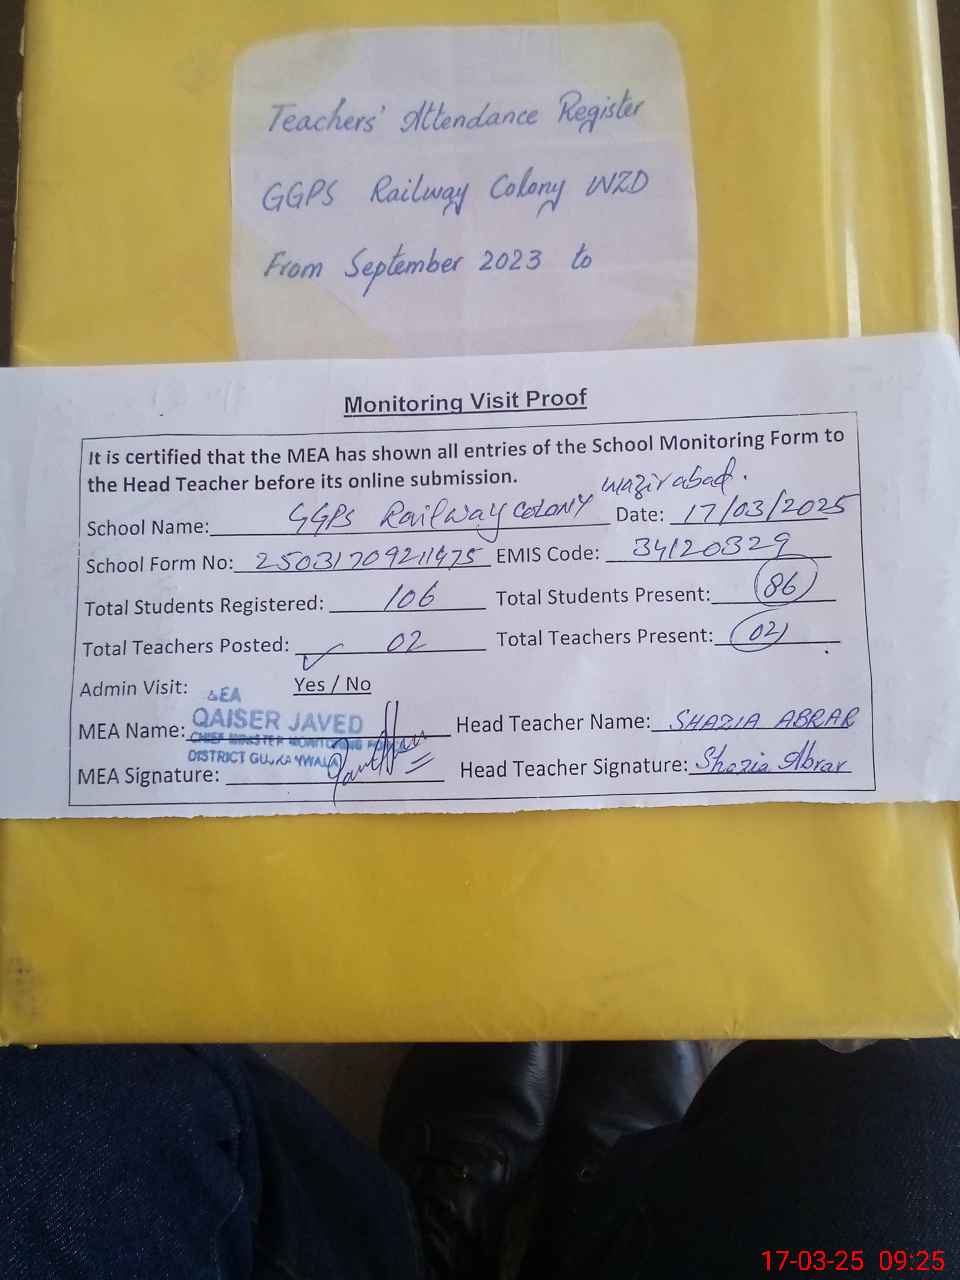 Teachers' Attendance Register
GGPS Railway Colony WZD
From September 2023 to
Monitoring Visit Proof
It is certified that the MEA has shown all entries of the School Monitoring Form to
the Head Teacher before its online submission.
School Name: GGPS Railway Colony Wazirabad. Date: 17/03/2025
School Form No: 25031709211475 EMIS Code: 34120329
Total Students Registered: 106 Total Students Present: 86
Total Teachers Posted: 02 Total Teachers Present: 02
Admin Visit: Yes / No
MEA
MEA Name: QAISER JAVED Head Teacher Name: SHAZIA ABRAR
CHIEF MINISTER MONITORING
DISTRICT GUJRANWALA
MEA Signature: Head Teacher Signature: Shazia Abrar
17-03-25 09:25